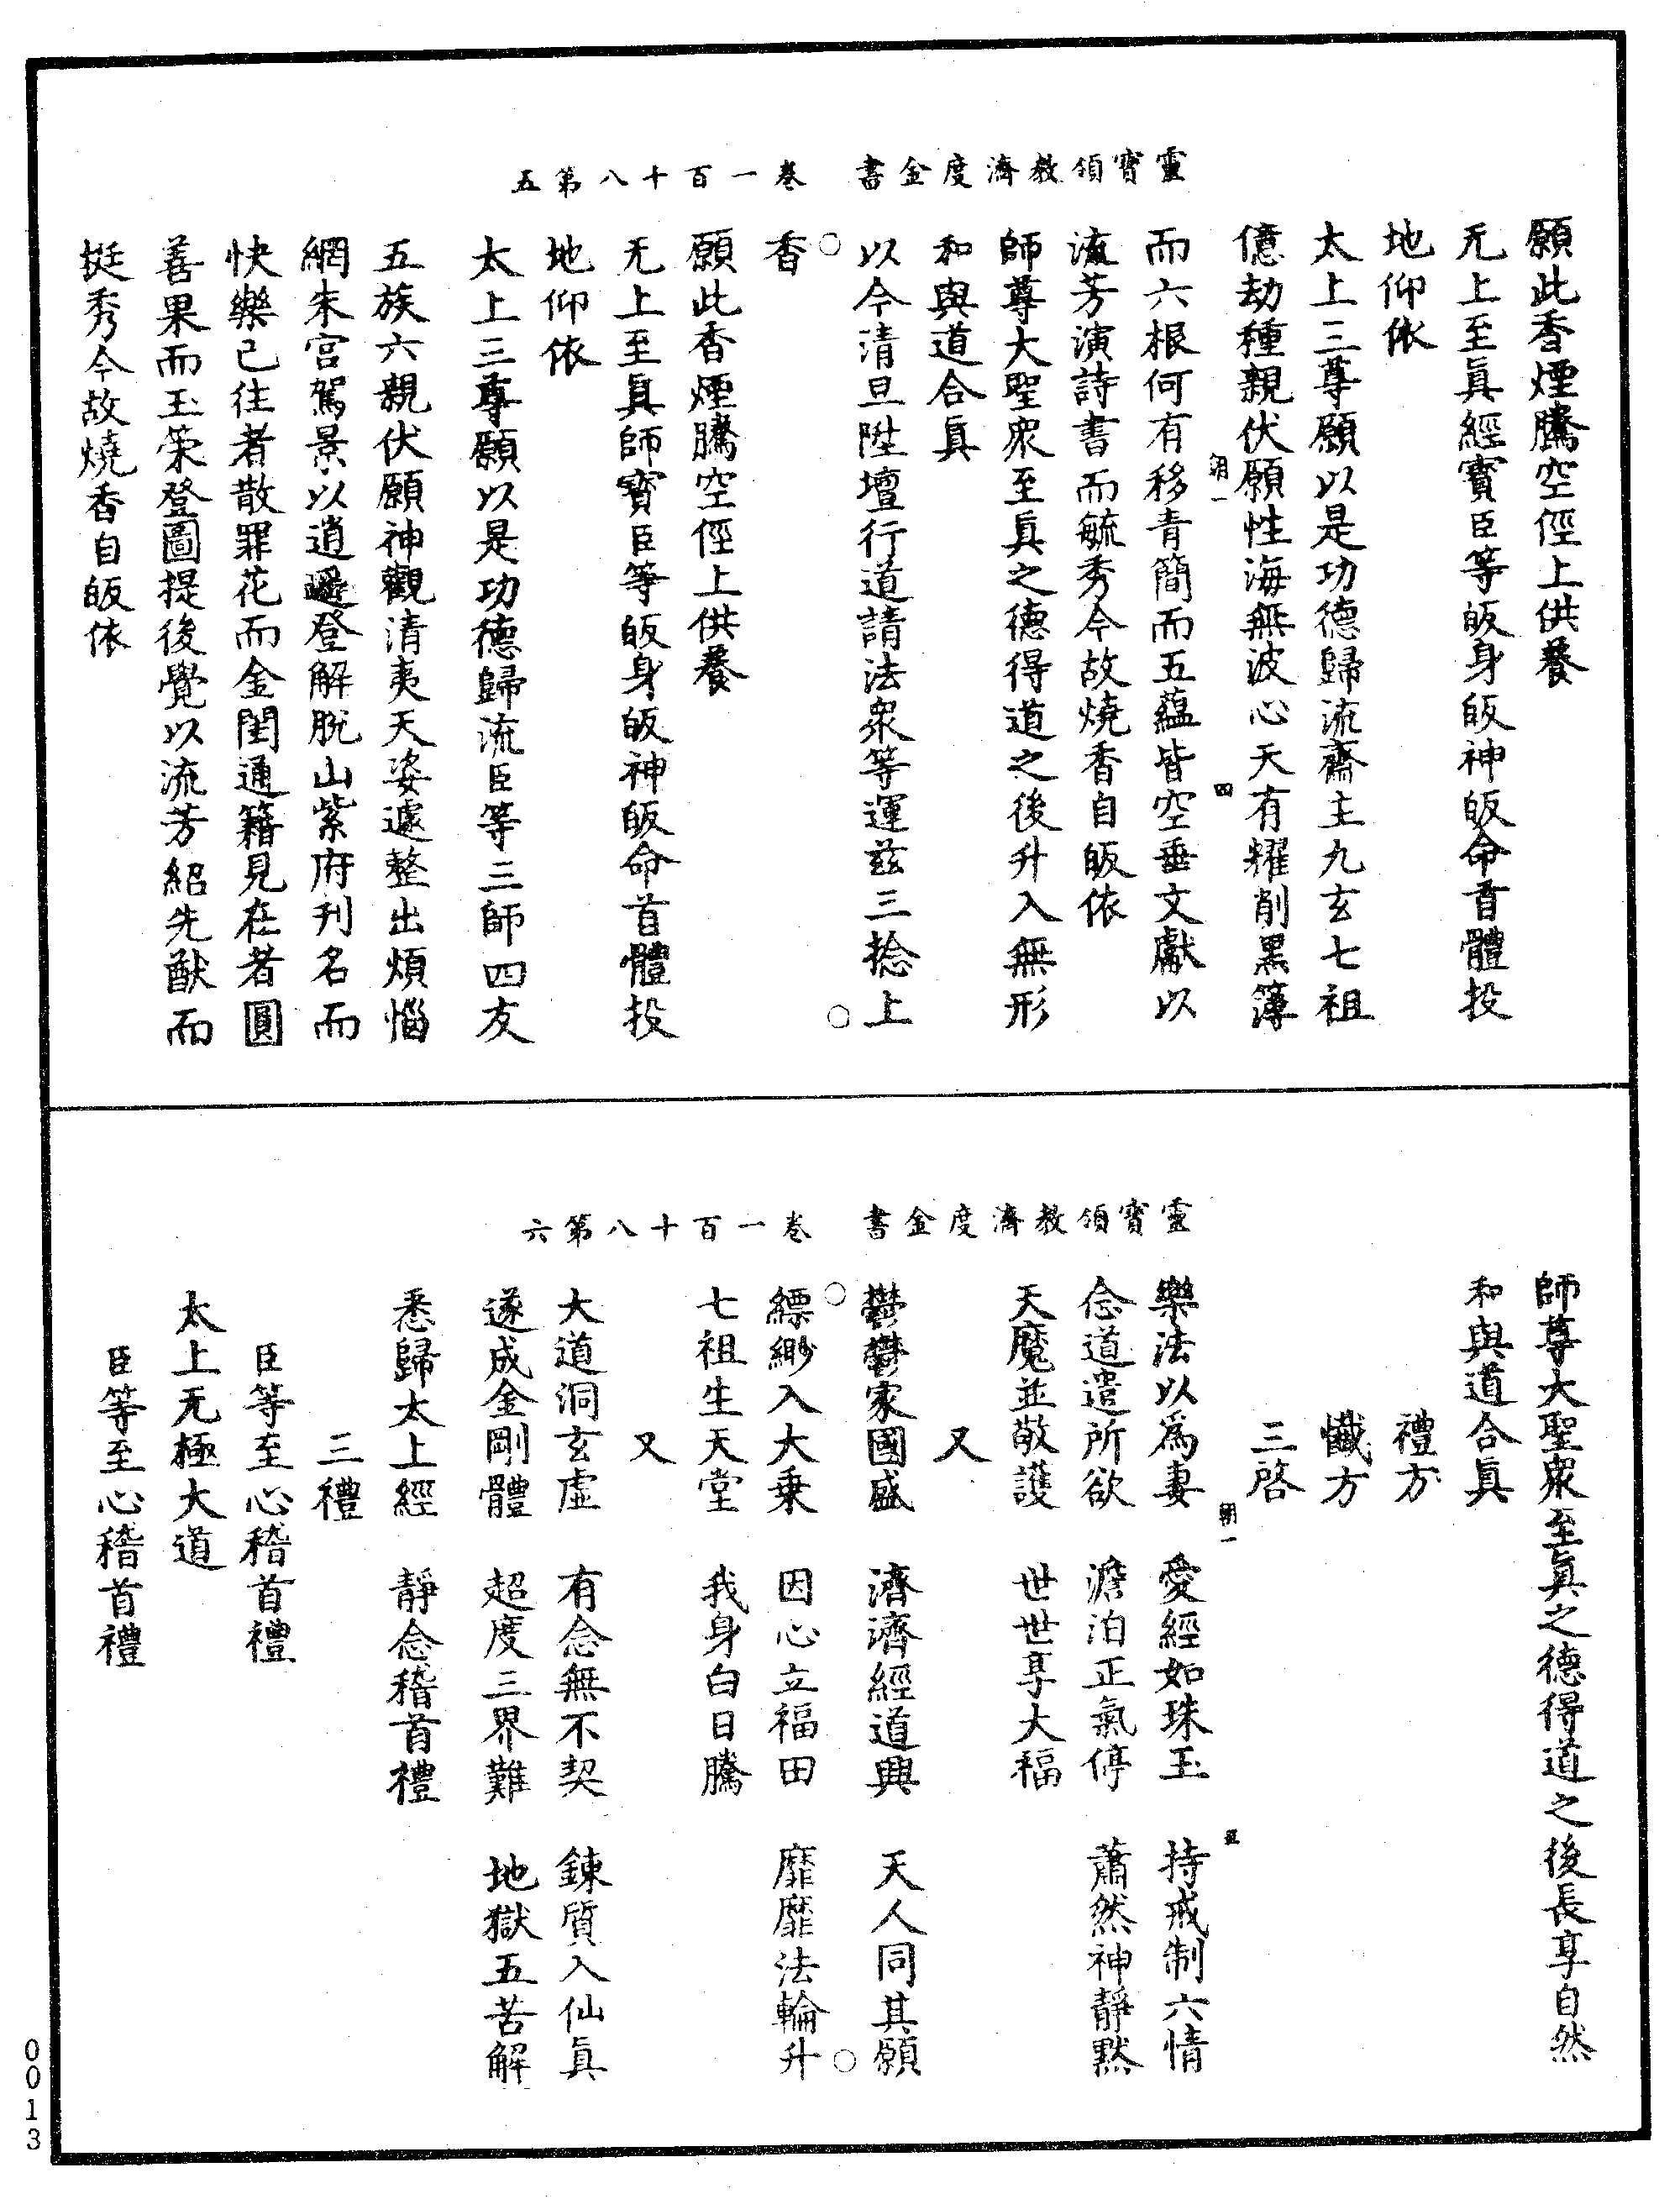 靈寶領教濟度金書　卷一百十八第五
願此香煙騰空徑上供養
无上至眞經寳臣等皈身皈神皈命首體投
地仰依
太上三尊願以是功德歸流齋主九玄七祖
億劫種親伏願性海無波心天有耀削黑簿
朝一　四
而六根何有移青簡而五蘊皆空垂文獻以
流芳演詩書而毓秀今故燒香自皈依
師尊大聖衆至眞之德得道之後升入無形
和與道合眞
以今清旦陞壇行道請法衆等運兹三捻上
香
願此香煙騰空徑上供養
无上至眞師寳臣等皈身皈神皈命首體投
地仰依
太上三尊願以是功德歸流臣等三師四友
五族六親伏願神觀清夷天姿遽整出煩惱
網朱宫駕景以逍遥登解脫山紫府刋名而
快樂已往者散罪花而金闺通籍見在者圓
善果而玉策登圖提後覺以流芳紹先猷而
挺秀今故燒香自皈依
靈寶領教濟度金書　卷一百十八第六
師尊大聖衆至眞之德得道之後長享自然
和與道合眞
禮方
懺方
三啓
朝一　五
樂法以爲妻　愛經如珠玉　持戒制六情
念道遣所欲　澹泊正氣停　蕭然神靜黙
天魔並敬護　世世享大福
又
鬱鬱家國盛　濟濟經道興　天人同其願
縹緲入大乗　因心立福田　靡靡法輪升
七祖生天堂　我身白日騰
又
大道洞玄虛　有念無不契　鍊質入仙眞
遂成金剛體　超度三界難　地獄五苦解
悉歸太上經　靜念稽首禮
三禮
臣等至心稽首禮
太上无極大道
臣等至心稽首禮
0013